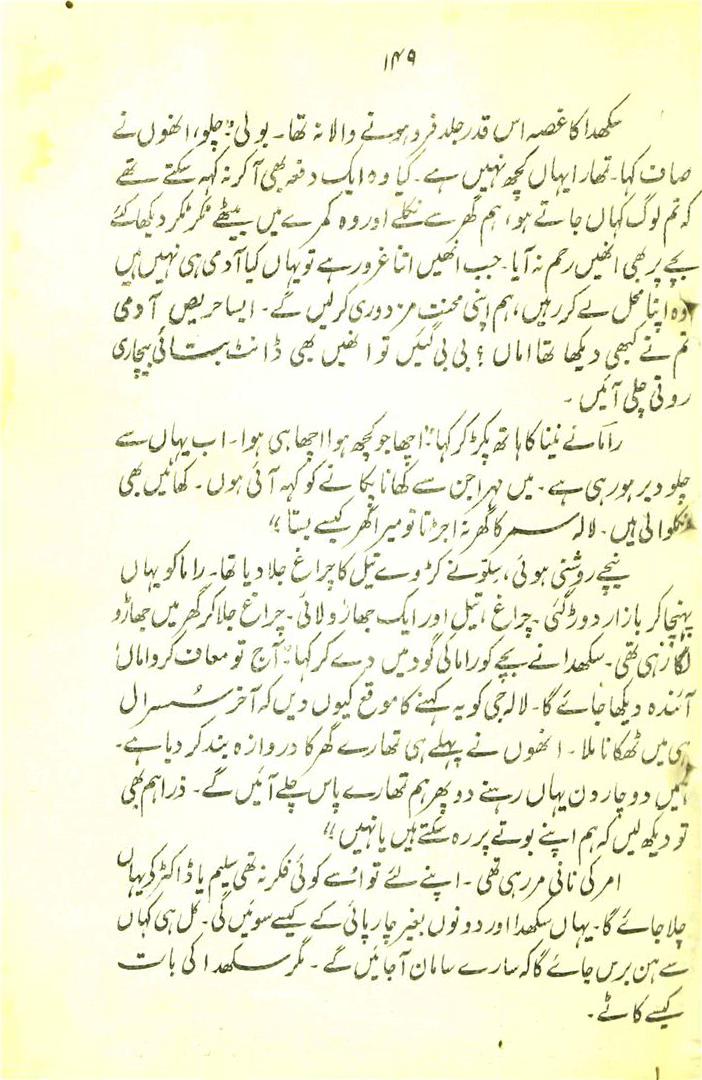 ۱۴۹
سکھدا کا غصہ اس قدر جلد فرو ہونے والا نہ تھا۔ بولی: "چلو، انھوں نے
صاف کہا۔ تمھارا یہاں کچھ نہیں ہے۔ کیا وہ ایک دفعہ بھی آکر نہ کہہ سکتے تھے
کہ تم لوگ کہاں جاتے ہو، ہم گھر سے نکلے اور وہ کمرے میں بیٹھے ٹکر ٹکر دیکھا کئے
بچے پر بھی انھیں رحم نہ آیا۔ جب انھیں اتنا غرور ہے تو یہاں کیا آدمی ہی نہیں ہیں
وہ اپنا محل لے کر رہیں، ہم اپنی محنت مزدوری کرلیں گے۔ ایسا حریص آدمی
تم نے کبھی دیکھا تھا اماں؟ بی بی گئیں تو انھیں بھی ڈانٹ بتائی بیچاری
روتی چلی آئیں۔
راما نے نینا کا ہاتھ پکڑ کر کہا: "اچھا جو کچھ ہوا اچھا ہی ہوا۔ اب یہاں سے
چلو دیر ہو رہی ہے۔ میں مہراجن سے کھانا پکانے کو کہہ آئی ہوں۔ کھاٹیں بھی
نکلوالی ہیں۔ لالہ سمر کا گھر نہ اجڑتا تو میرا گھر کیسے بستا"
نیچے روشنی ہوئی، سلو نے کڑوے تیل کا چراغ جلا دیا تھا۔ راما کو یہاں
پہنچا کر بازار دوڑ گئی۔ چراغ، تیل اور ایک جھاڑو لائی۔ چراغ جلا کر گھر میں جھاڑو
لگا رہی تھی۔ سکھدا نے بچے کو راما کی گود میں دے کر کہا: "آج تو معاف کرو اماں!
آئندہ دیکھا جائے گا۔ لالہ جی کو یہ کہنے کا موقع کیوں دیں کہ آخر سُسرال
ہی میں ٹھکانا ملا۔ انھوں نے پہلے ہی تمھارے گھر کا دروازہ بند کر دیا ہے۔
ہمیں دو چار دن یہاں رہنے دو پھر ہم تمھارے پاس چلے آئیں گے۔ ذرا ہم بھی
تو دیکھ لیں کہ ہم اپنے بوتے پر رہ سکتے ہیں یا نہیں"
امر کی نانی مر رہی تھی۔ اپنے لئے تو اُسے کوئی فکر نہ تھی سلیم یا ڈاکٹر کے یہاں
چلا جائے گا۔ یہاں سکھدا اور دونوں بغیر چارپائی کے کیسے سوئیں گی۔ کل ہی کہاں
سے ہن برس جائے گا کہ سارے سامان آجائیں گے۔ مگر سکھدا کی بات
کیسے کاٹے۔